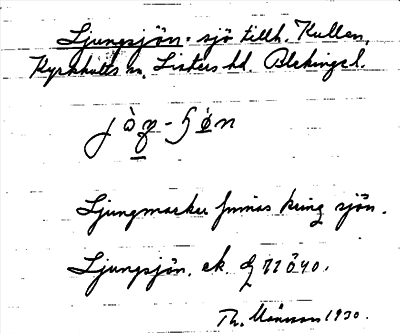 Ljungsjön. sjö tillh. Kullen,
Kyrkhults sn, Listers hd. Blekinge l.
Ljungmarker finnas kring sjön.
Ljungsjön. ek.
Th. Månsson 1930.